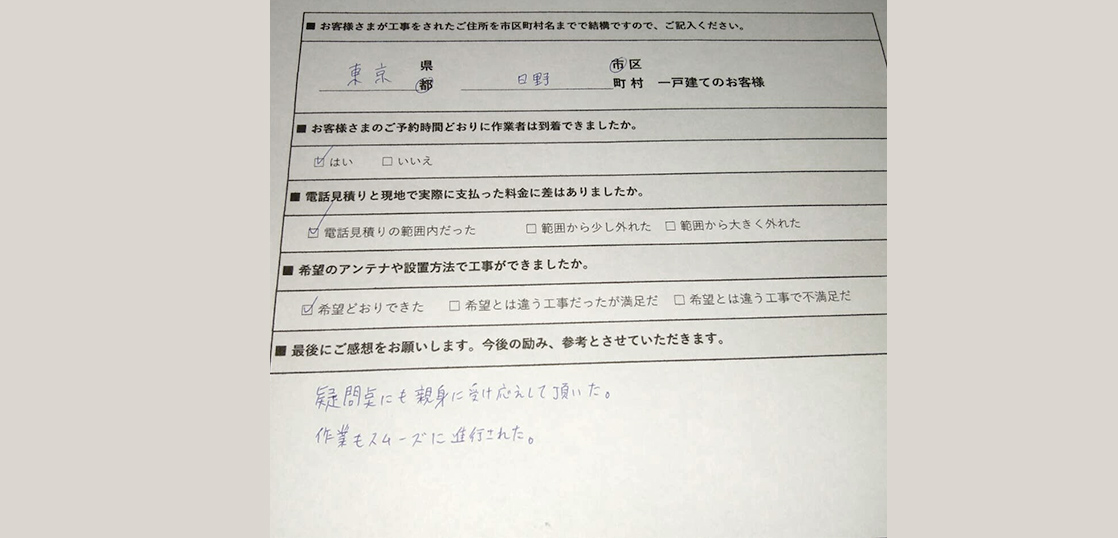 ■ お客様さまが工事をされたご住所を市区町村名までで結構ですので、ご記入ください。
東京 県都 日野 市区町村 一戸建てのお客様
■ お客様さまのご予約時間どおりに作業者は到着できましたか。
☑ はい □ いいえ
■ 電話見積りと現地で実際に支払った料金に差はありましたか。
☑ 電話見積りの範囲内だった □ 範囲から少し外れた □ 範囲から大きく外れた
■ 希望のアンテナや設置方法で工事ができましたか。
☑ 希望どおりできた □ 希望とは違う工事だったが満足だ □ 希望とは違う工事で不満足だ
■ 最後にご感想をお願いします。今後の励み、参考とさせていただきます。
疑問点にも親身に受け応えして頂いた。
作業もスムーズに進行された。